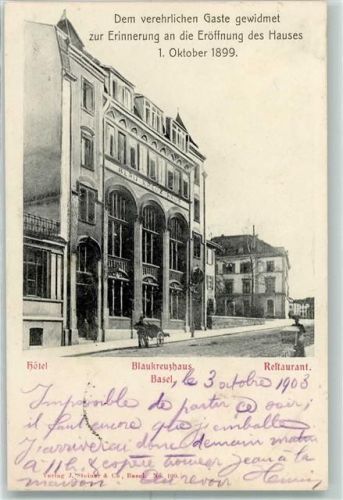 Dem verehrlichen Gaste gewidmet
zur Erinnerung an die Eröffnung des Hauses
1. Oktober 1899.
BLAU KREUZ HAUS
Hôtel Blaukreuzhaus Restaurant.
Basel, le 3 octobre 1905
Impossible de partir ce soir;
il faut encore que j'emballe
J'arriverai donc demain matin
à 11 h. & espère trouver Jean à la
maison au revoir Henri
Verlag J. & Co., Basel. No. 100.